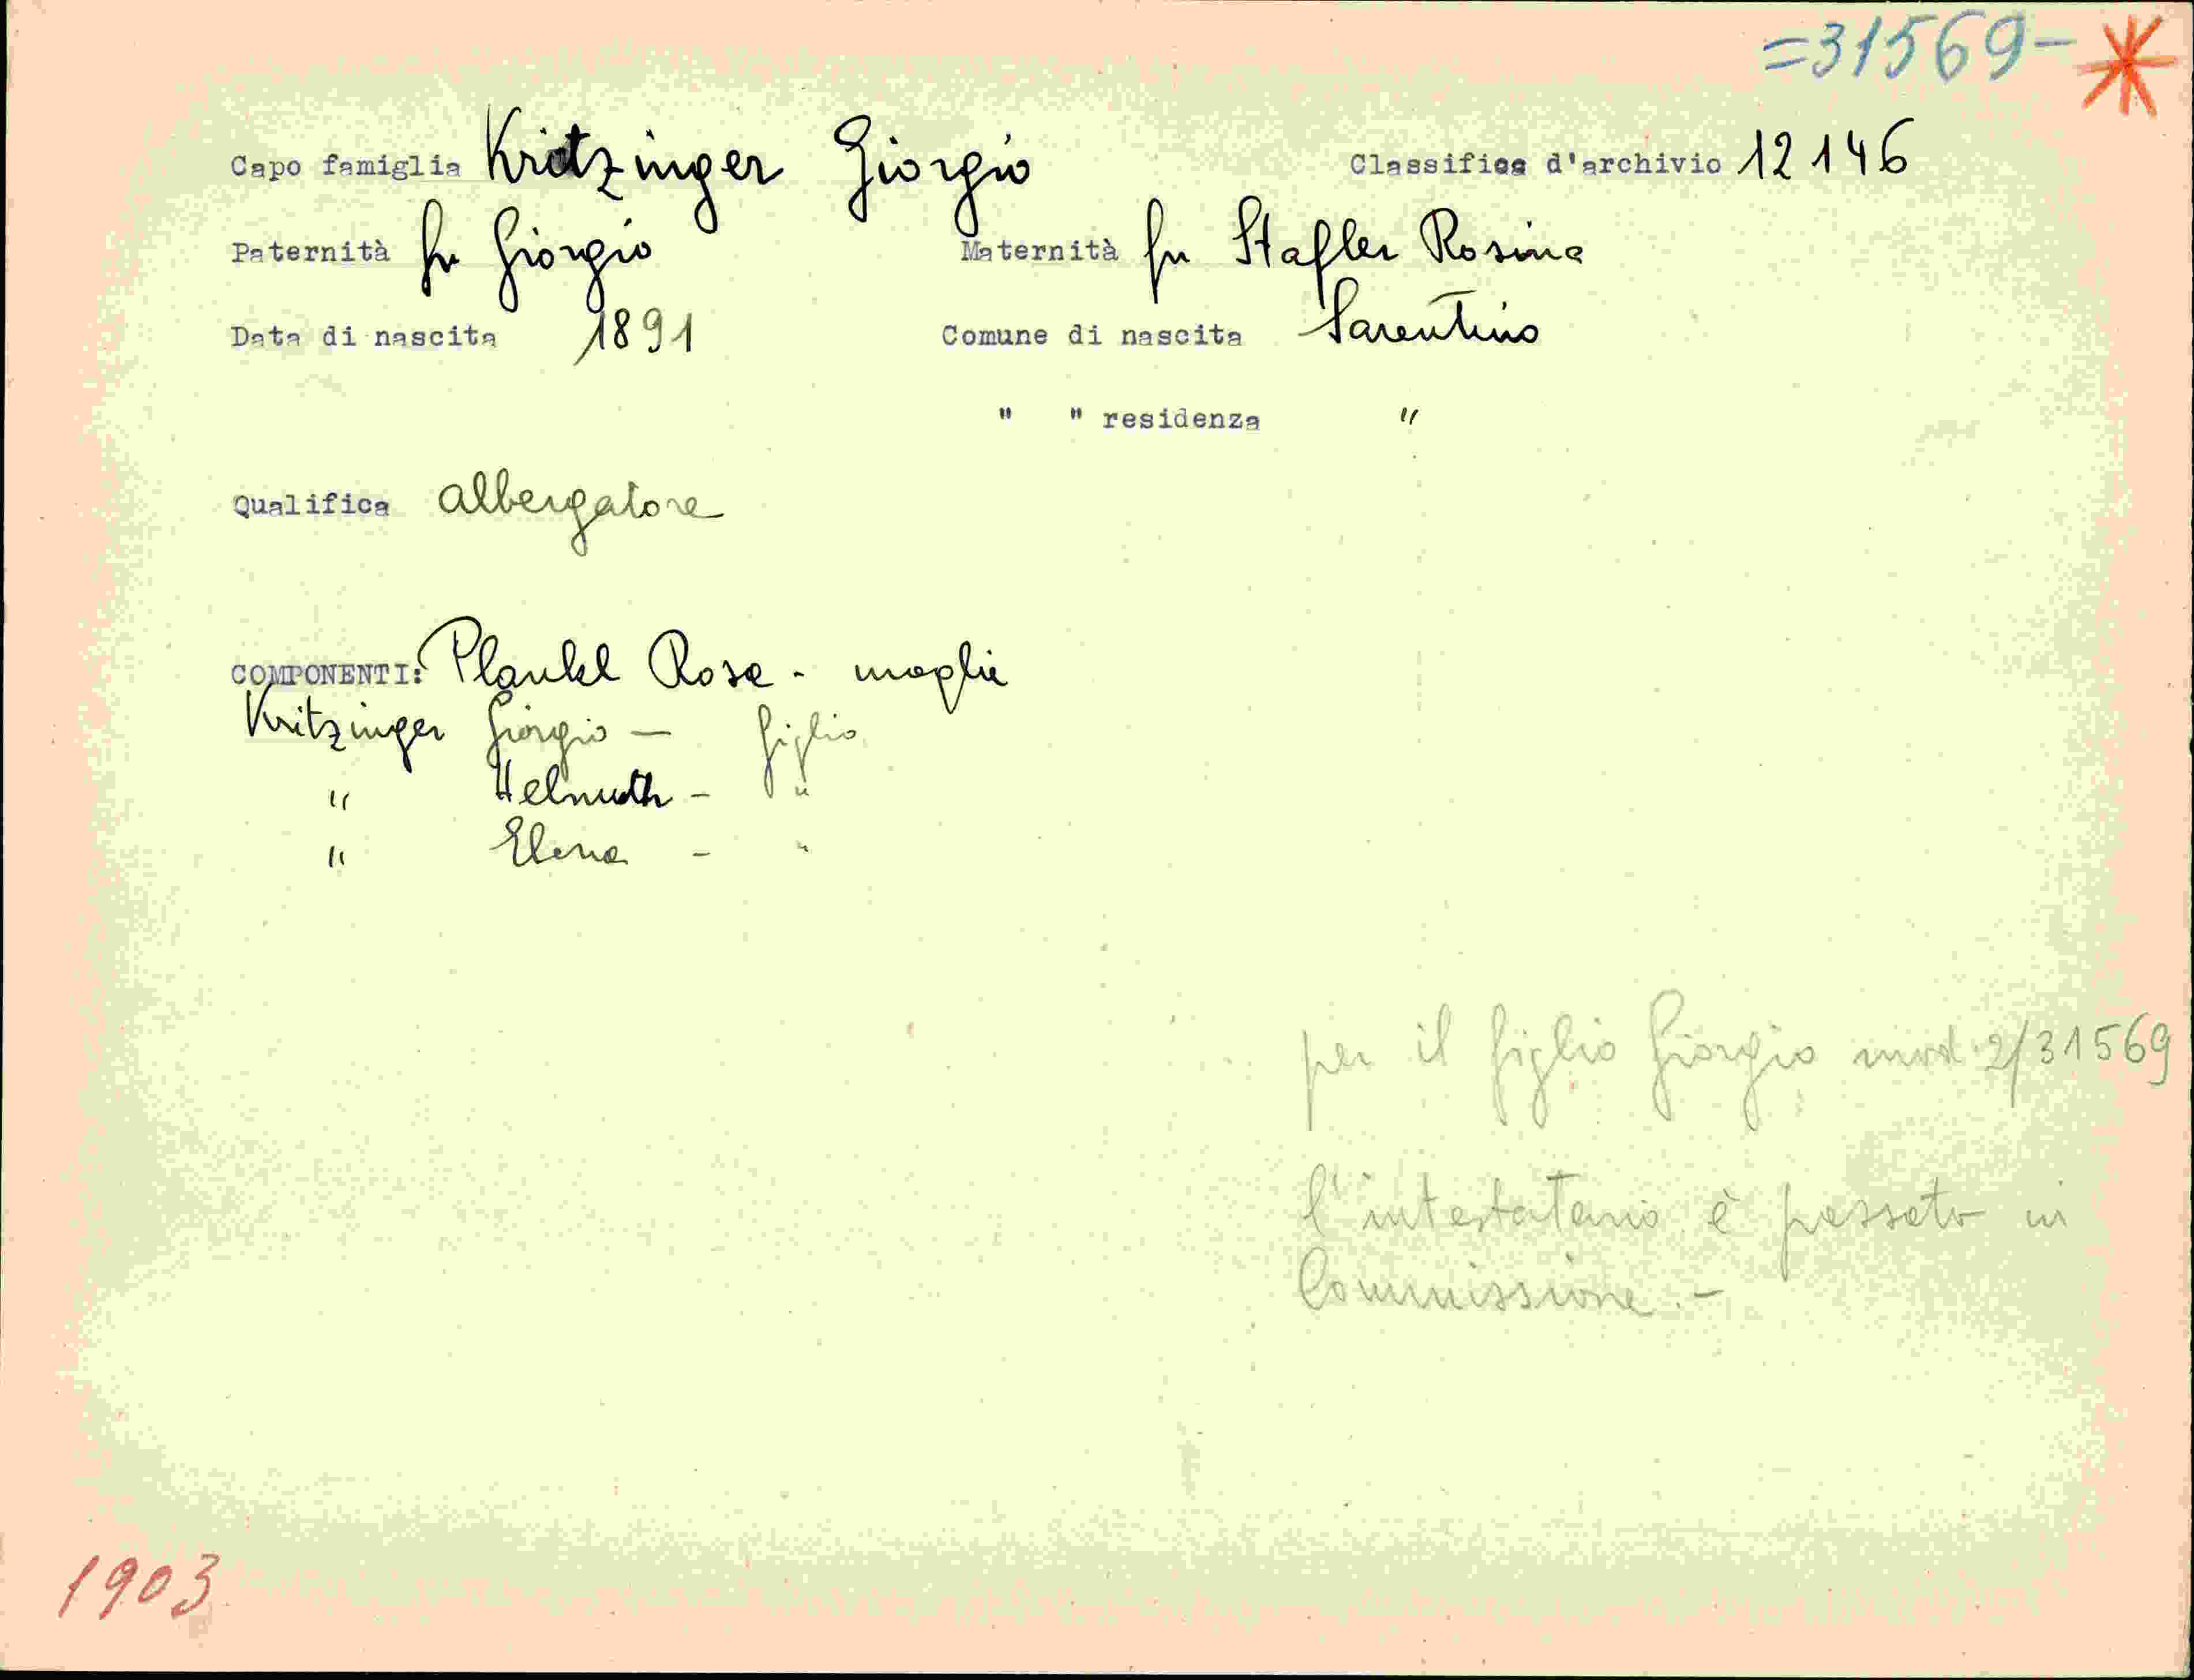 =31569-
Capo famiglia Kritzinger Giorgio Classifica d'archivio 12146
Paternità fu Giorgio Maternità fu Stafler Rosina
Data di nascita 1891 Comune di nascita Sarentino
" " residenza "
Qualifica albergatore
COMPONENTI: Plankl Rosa - moglie
Kritzinger Giorgio - figlio
" Helmuth - "
" Elena - "
per il figlio Giorgio mod. 2/31569
l'intestatario è passato in
Commissione.-
1903